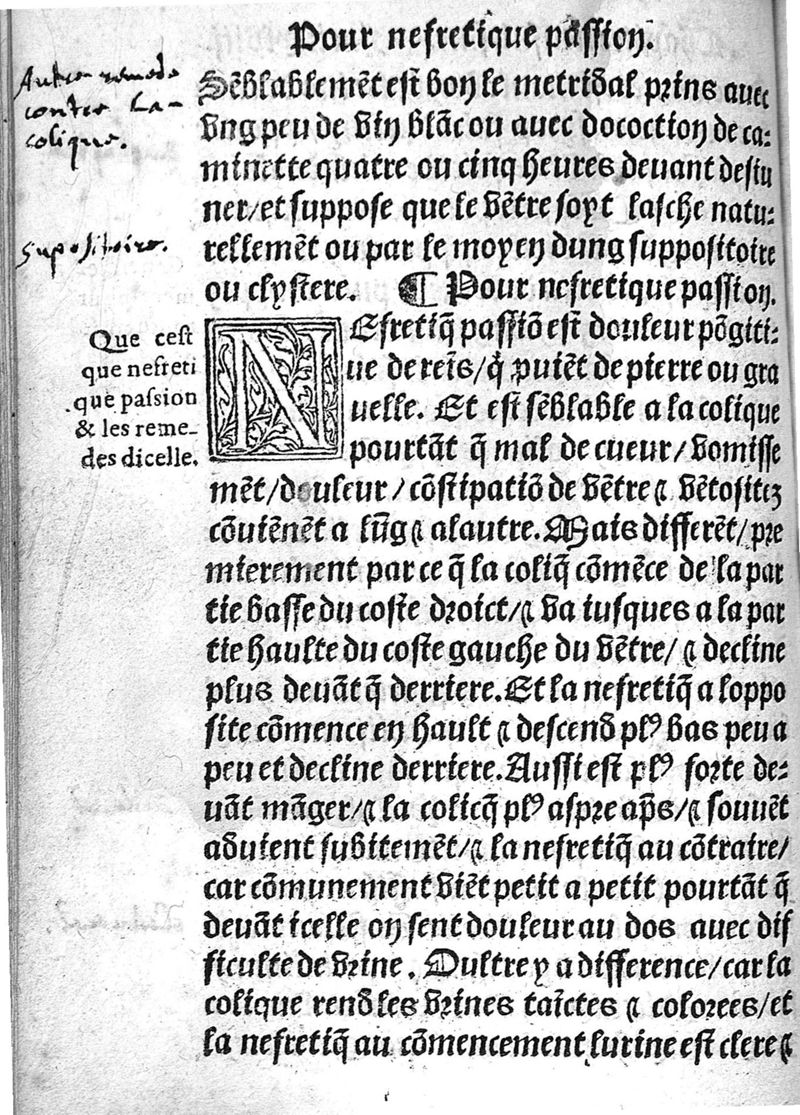 Pour nefretique passion.
Autre remede
contre la
colique.
Sẽblablemẽt est bon le metridal prins avec
vng peu de vin blãc ou avec docoction de ca-
minette quatre ou cinq heures devant desiu
ner/et suppose que le vẽtre soyt lasche natu-
rellemẽt ou par le moyen dung suppositoire
ou clystere. ¶ Pour nefretique passion.
supositoire.
Que cest
que nefreti
que passion
& les reme-
des dicelle.
NEfretiq̃ passiõ est douleur põgiti-
ue de reĩs/q̃ puiẽt de pierre ou gra
uelle. Et est sẽblable a la colique
pourtãt q̃ mal de cueur/vomisse
mẽt/douleur/cõstipatiõ de vẽtre ⁊ vẽtositez
cõuiẽnẽt a lũg ⁊ alautre. Mais differẽt/pre
mierement par ce q̃ la coliq̃ cõmẽce de la par
tie basse du coste droict/⁊ va iusques a la par
tie haulte du coste gauche du vẽtre/⁊ decline
plus devãt q̃ derriere. Et la nefretiq̃ a loppo
site cõmence en hault ⁊ descend plꝰ bas peu a
peu et decline derriere. Aussi est plꝰ forte de-
uãt mãger/⁊ la colicq̃ plꝰ aspre ap̃s/⁊ souuẽt
aduient subitemẽt/⁊ la nefretiq̃ au cõtraire/
car cõmunement viẽt petit a petit pourtãt q̃
devãt icelle on sent douleur au dos avec dif
ficulte de vrine. Oultre y a difference/car la
colique rend les vrines taĩctes ⁊ colorees/et
la nefretiq̃ au cõmencement lurine est clere ⁊